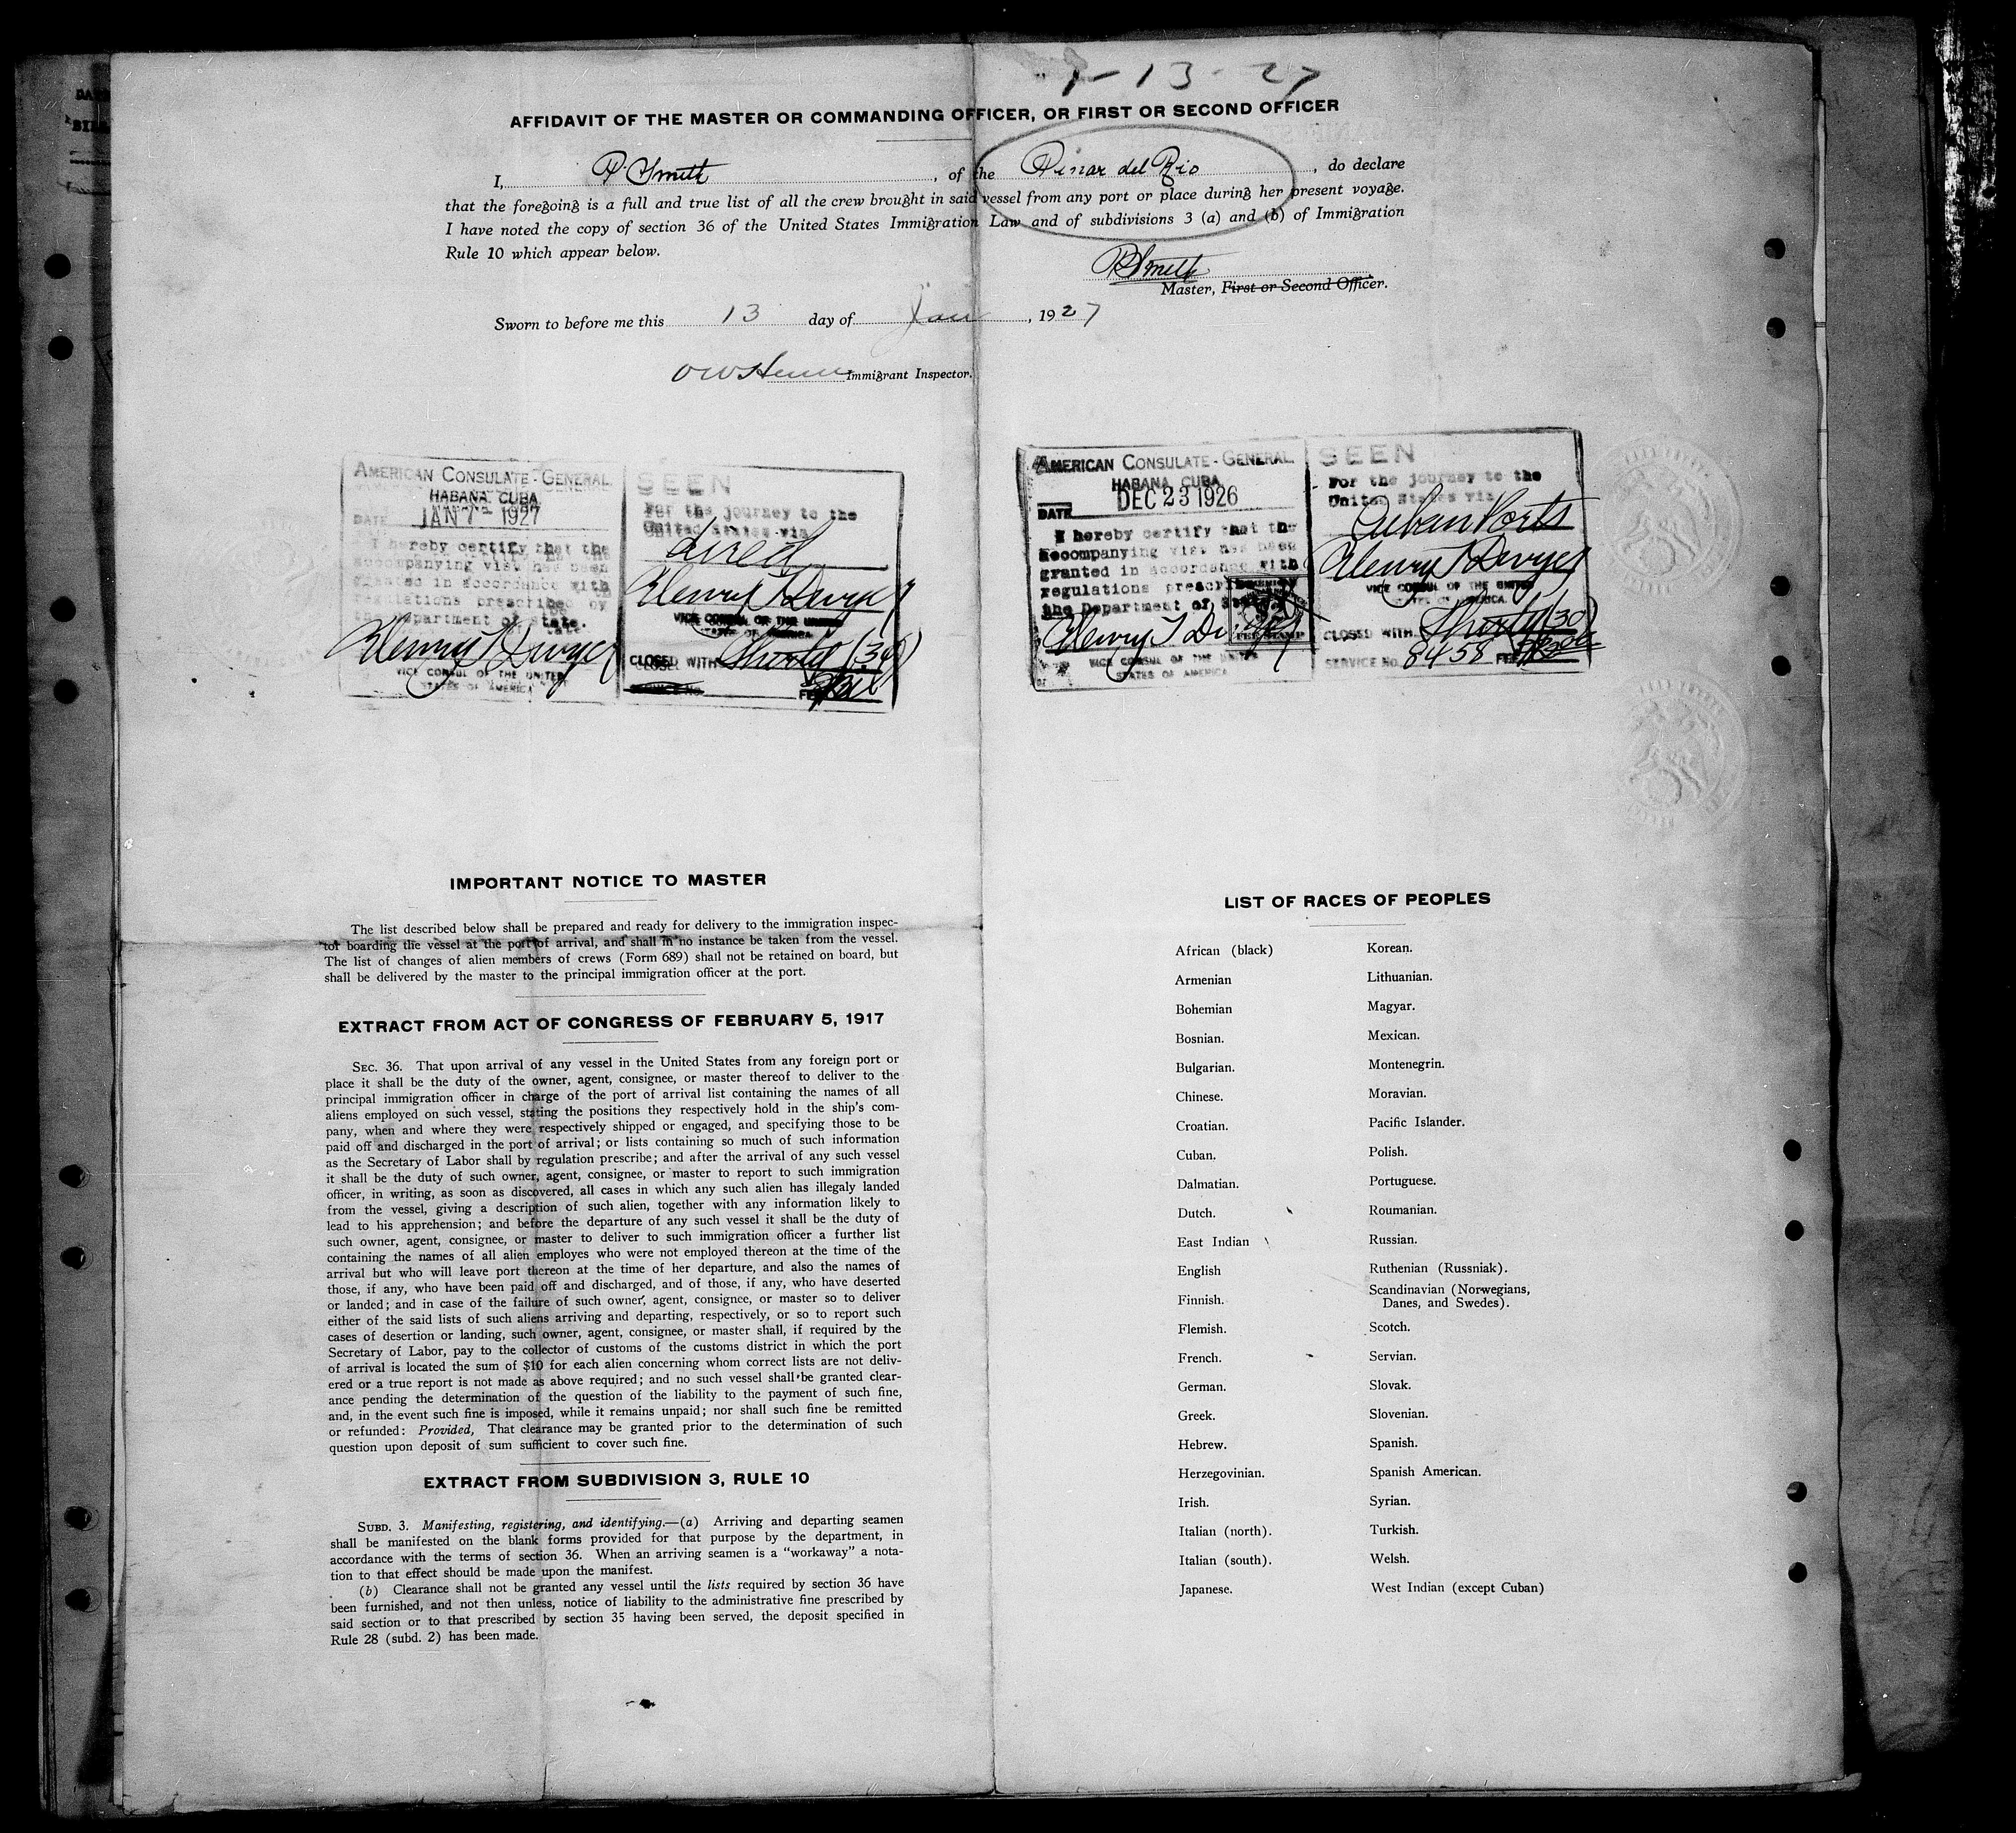 1-13-27
AFFIDAVIT OF THE MASTER OR COMMANDING OFFICER, OR FIRST OR SECOND OFFICER
I, P. Smith, of the Pinar del Rio, do declare
that the foregoing is a full and true list of all the crew brought in said vessel from any port or place during her present voyage.
I have noted the copy of section 36 of the United States Immigration Law and of subdivisions 3 (a) and (b) of Immigration
Rule 10 which appear below.
P Smith
Master, First or Second Officer.
Sworn to before me this 13 day of Jan, 1927
Immigrant Inspector.
AMERICAN CONSULATE-GENERAL
HABANA, CUBA
DATE JAN 7 - 1927
I hereby certify that the
accompanying visa has been
granted in accordance with
regulations prescribed by
the Department of State.
Henry T Dwyer
VICE CONSUL OF THE UNITED
STATES OF AMERICA
SEEN
For the journey to the
United States via
direct
Henry T Dwyer
VICE CONSUL OF THE UNITED
STATES OF AMERICA
CLOSED WITH Thirty (30)
SERVICE No.
FEE
AMERICAN CONSULATE-GENERAL
HABANA, CUBA
DATE DEC 23 1926
I hereby certify that the
accompanying visa has been
granted in accordance with
regulations prescribed by
the Department of State
Henry T Dwyer
FEE STAMP
VICE CONSUL OF THE UNITED
STATES OF AMERICA
SEEN
For the journey to the
United States via
Cuban Ports
Henry T Dwyer
VICE CONSUL OF THE UNITED
STATES OF AMERICA.
CLOSED WITH Thirty (30)
SERVICE No. 8458 FEE
IMPORTANT NOTICE TO MASTER
The list described below shall be prepared and ready for delivery to the immigration inspec-
tor boarding the vessel at the port of arrival, and shall in no instance be taken from the vessel.
The list of changes of alien members of crews (Form 689) shall not be retained on board, but
shall be delivered by the master to the principal immigration officer at the port.
EXTRACT FROM ACT OF CONGRESS OF FEBRUARY 5, 1917
SEC. 36. That upon arrival of any vessel in the United States from any foreign port or
place it shall be the duty of the owner, agent, consignee, or master thereof to deliver to the
principal immigration officer in charge of the port of arrival list containing the names of all
aliens employed on such vessel, stating the positions they respectively hold in the ship's com-
pany, when and where they were respectively shipped or engaged, and specifying those to be
paid off and discharged in the port of arrival; or lists containing so much of such information
as the Secretary of Labor shall by regulation prescribe; and after the arrival of any such vessel
it shall be the duty of such owner, agent, consignee, or master to report to such immigration
officer, in writing, as soon as discovered, all cases in which any such alien has illegaly landed
from the vessel, giving a description of such alien, together with any information likely to
lead to his apprehension; and before the departure of any such vessel it shall be the duty of
such owner, agent, consignee, or master to deliver to such immigration officer a further list
containing the names of all alien employes who were not employed thereon at the time of the
arrival but who will leave port thereon at the time of her departure, and also the names of
those, if any, who have been paid off and discharged, and of those, if any, who have deserted
or landed; and in case of the failure of such owner, agent, consignee, or master so to deliver
either of the said lists of such aliens arriving and departing, respectively, or so to report such
cases of desertion or landing, such owner, agent, consignee, or master shall, if required by the
Secretary of Labor, pay to the collector of customs of the customs district in which the port
of arrival is located the sum of $10 for each alien concerning whom correct lists are not deliv-
ered or a true report is not made as above required; and no such vessel shall be granted clear-
ance pending the determination of the question of the liability to the payment of such fine,
and, in the event such fine is imposed, while it remains unpaid; nor shall such fine be remitted
or refunded: Provided, That clearance may be granted prior to the determination of such
question upon deposit of sum sufficient to cover such fine.
EXTRACT FROM SUBDIVISION 3, RULE 10
SUBD. 3. Manifesting, registering, and identifying.—(a) Arriving and departing seamen
shall be manifested on the blank forms provided for that purpose by the department, in
accordance with the terms of section 36. When an arriving seamen is a "workaway" a nota-
tion to that effect should be made upon the manifest.
(b) Clearance shall not be granted any vessel until the lists required by section 36 have
been furnished, and not then unless, notice of liability to the administrative fine prescribed by
said section or to that prescribed by section 35 having been served, the deposit specified in
Rule 28 (subd. 2) has been made.
LIST OF RACES OF PEOPLES
African (black)
Armenian
Bohemian
Bosnian.
Bulgarian.
Chinese.
Croatian.
Cuban.
Dalmatian.
Dutch.
East Indian
English
Finnish.
Flemish.
French.
German.
Greek.
Hebrew.
Herzegovinian.
Irish.
Italian (north).
Italian (south).
Japanese.
Korean.
Lithuanian.
Magyar.
Mexican.
Montenegrin.
Moravian.
Pacific Islander.
Polish.
Portuguese.
Roumanian.
Russian.
Ruthenian (Russniak).
Scandinavian (Norwegians,
Danes, and Swedes).
Scotch.
Servian.
Slovak.
Slovenian.
Spanish.
Spanish American.
Syrian.
Turkish.
Welsh.
West Indian (except Cuban)